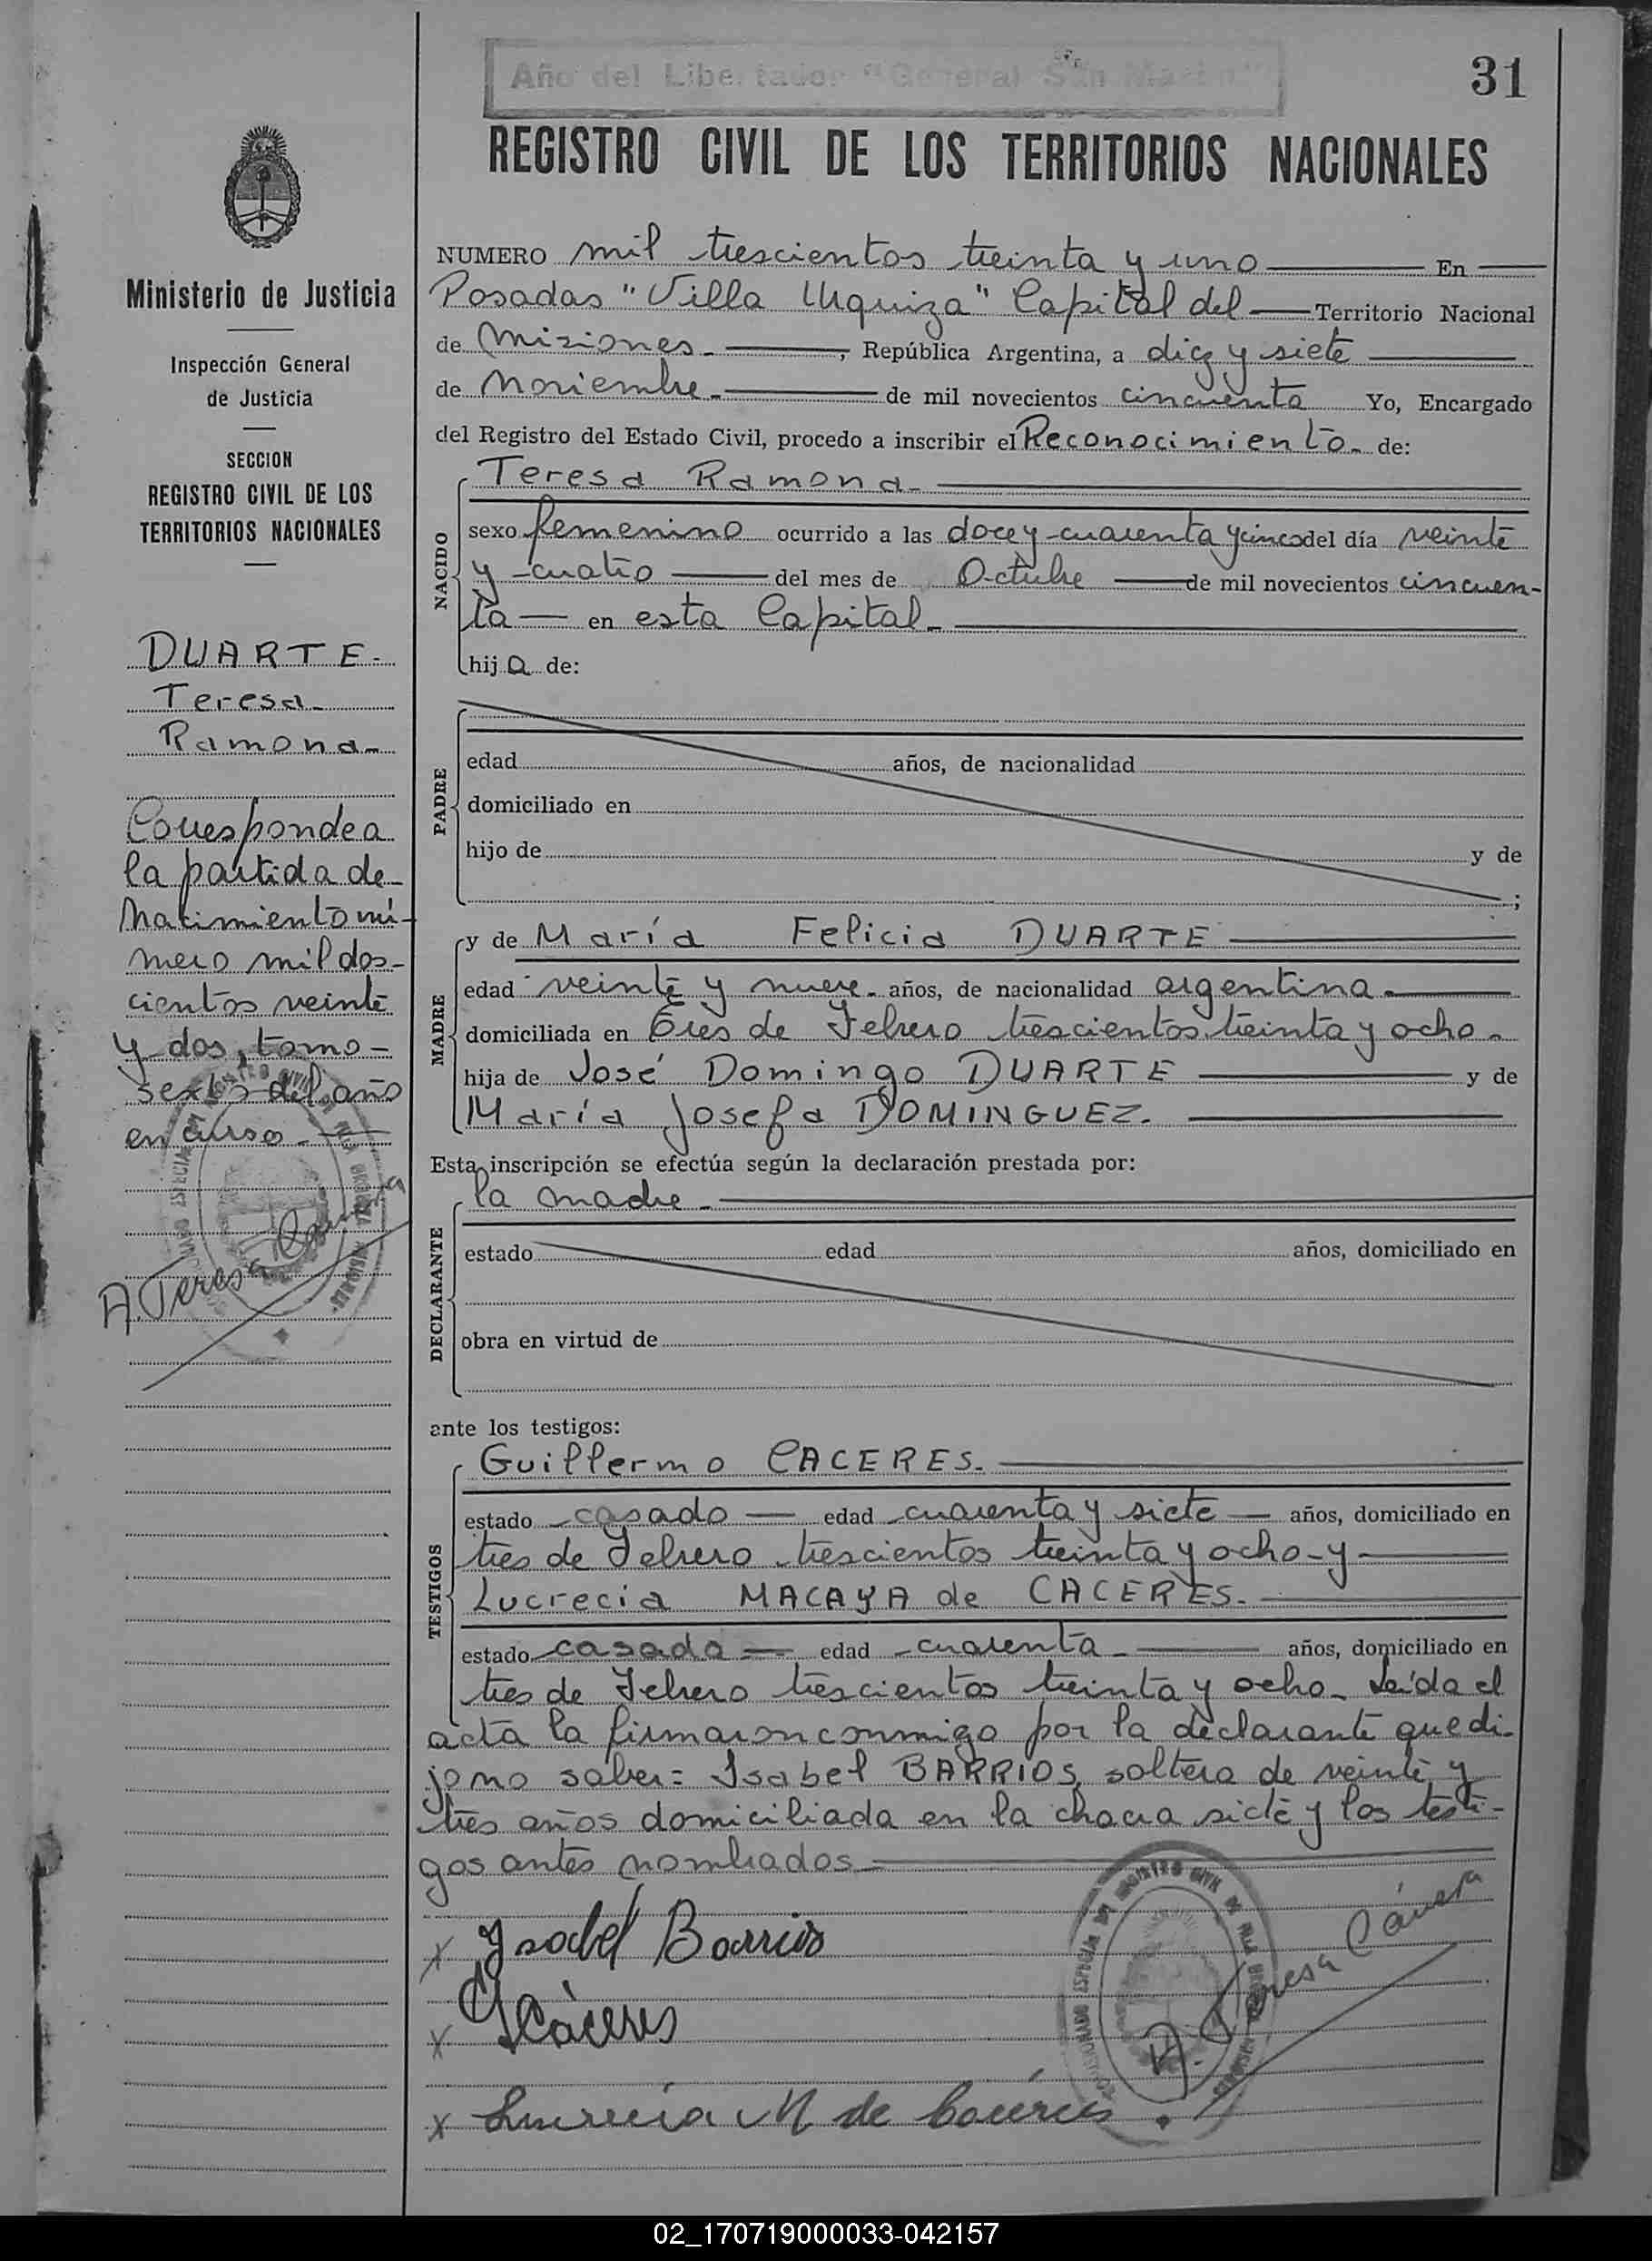 Año del Libertador "General San Martín"
31
REGISTRO CIVIL DE LOS TERRITORIOS NACIONALES
Ministerio de Justicia
Inspección General
de Justicia
SECCION
REGISTRO CIVIL DE LOS
TERRITORIOS NACIONALES
DUARTE.
Teresa
Ramona
Corresponde a
la partida de
Nacimiento nú-
mero mil dos-
cientos veinte
y dos, tomo
sexto del año
en curso.
A. Teresa
NUMERO mil trescientos treinta y uno En
Posadas "Villa Urquiza" Capital del Territorio Nacional
de Misiones, República Argentina, a diez y siete
de Noviembre de mil novecientos cincuenta Yo, Encargado
del Registro del Estado Civil, procedo a inscribir el Reconocimiento de:
NACIDO
Teresa Ramona
sexo femenino ocurrido a las doce y cuarenta y cinco del día veinte
y cuatro del mes de Octubre de mil novecientos cincuen-
ta en esta Capital
hija de:
PADRE
edad años, de nacionalidad
domiciliado en
hijo de y de
;
MADRE
y de María Felicia DUARTE
edad veinte y nueve años, de nacionalidad argentina
domiciliada en Tres de Febrero trescientos treinta y ocho
hija de José Domingo DUARTE y de
María Josefa DOMINGUEZ.
Esta inscripción se efectúa según la declaración prestada por:
DECLARANTE
la madre
estado edad años, domiciliado en
obra en virtud de
ante los testigos:
TESTIGOS
Guillermo CACERES.
estado casado edad cuarenta y siete años, domiciliado en
tres de Febrero trescientos treinta y ocho y
Lucrecia MACAYA de CACERES.
estado casada edad cuarenta años, domiciliado en
tres de Febrero trescientos treinta y ocho. Leída el
acta la firmaron conmigo por la declarante que di-
jo no saber: Isabel BARRIOS, soltera de veinte y
tres años domiciliada en la chacra siete y los testi-
gos antes nombrados
x Ysabel Barrios
x GCáceres
x Lucrecia M de Cáceres
A. Teresa
02_170719000033-042157